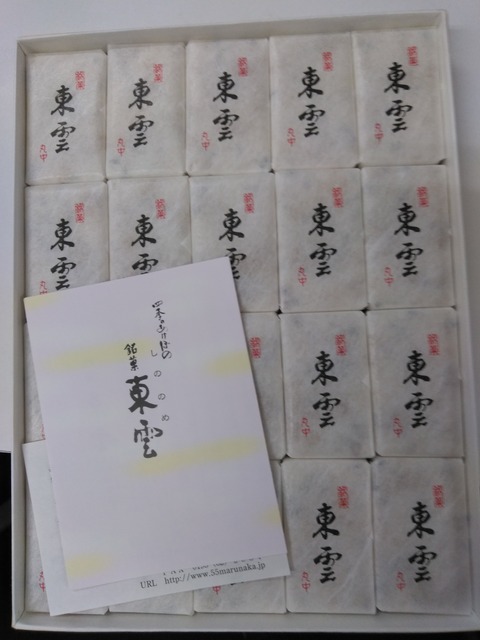 銘菓
東雲
丸中
銘菓
東雲
丸中
銘菓
東雲
丸中
銘菓
東雲
丸中
銘菓
東雲
丸中
銘菓
東雲
丸中
銘菓
東雲
銘菓
東雲
銘菓
東雲
丸中
銘菓
東雲
丸中
四季のあけぼの
しののめ
銘菓
東雲
銘菓
銘菓
東雲
丸中
銘菓
東雲
丸中
銘菓
東雲
丸中
銘菓
東雲
丸中
URL http://www.55marunaka.jp